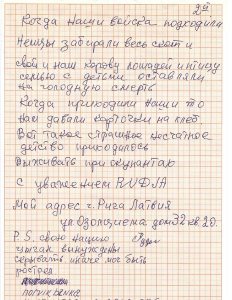 2й
Когда наши войска подходили
Немцы забирали весь скот и
свой и наш корову лошадей и птицу
семью с детьми оставляли
на голодную смерть
Когда приходили наши то
нам давали карточки на хлеб.
Вот такое страшное несчатное
детство приходилось
выживать при окупантах
С уважением
Мой адрес г. Рига Латвия
ул Озолциема дом 32 кв 20.
P.S. свою нацию
цыган вынуждены
скрывать иначе мог быть
рострел